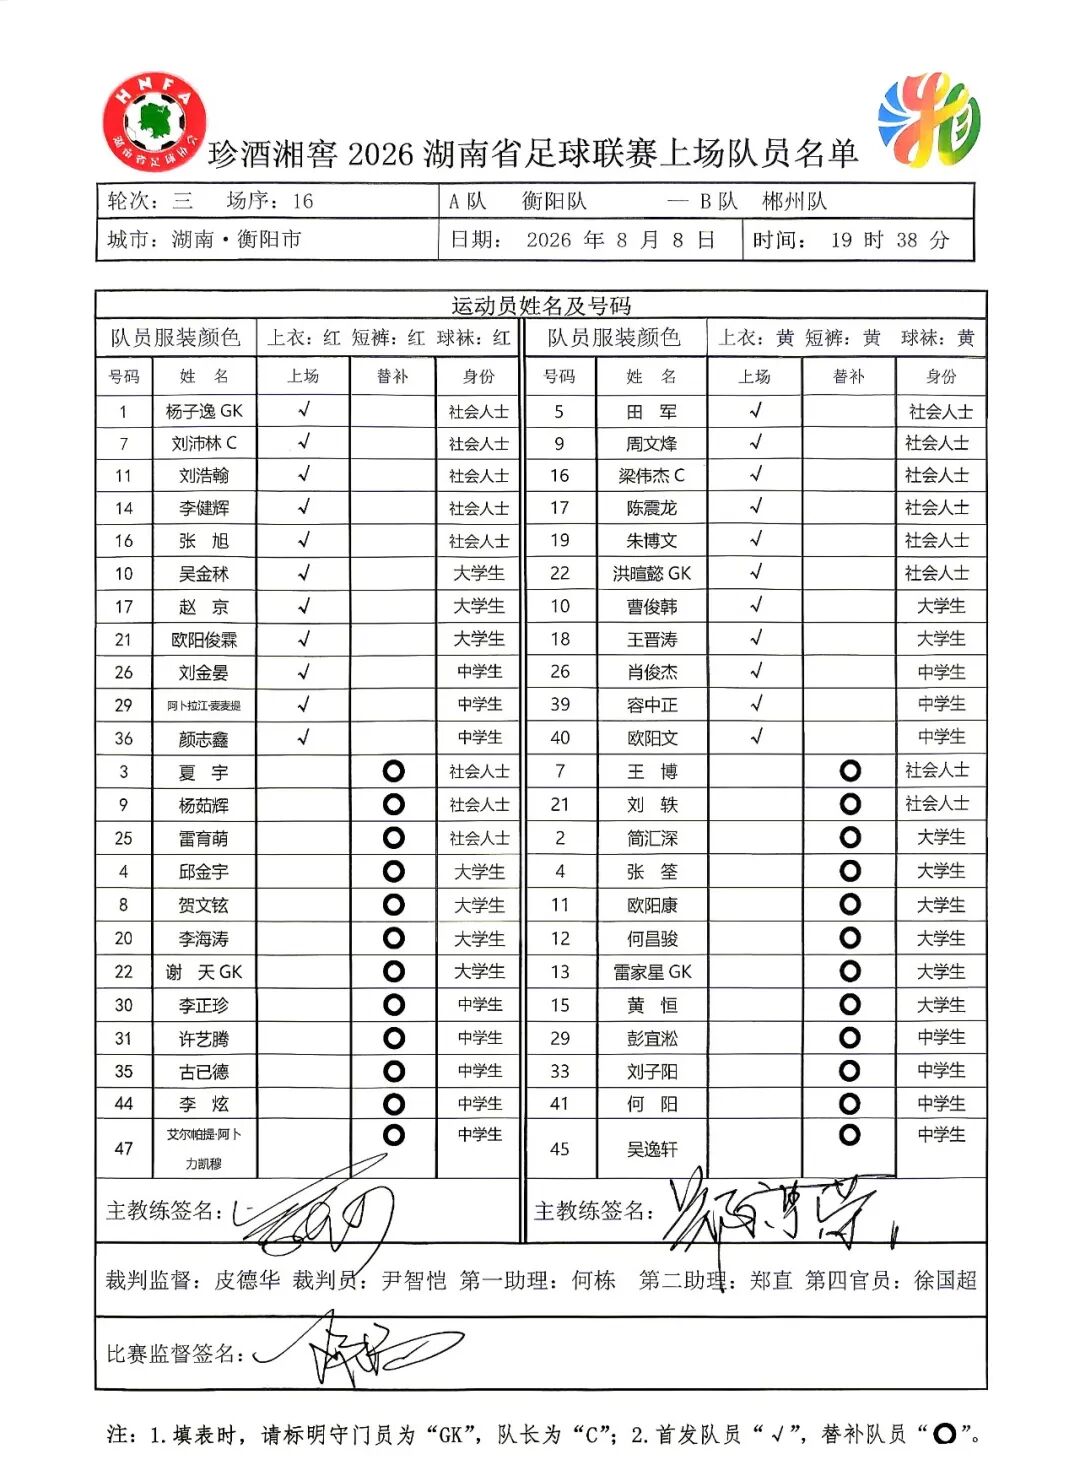 HNFA
湖南省足球协会
珍酒湘窖 2026 湖南省足球联赛上场队员名单
轮次：三 场序：16 A 队 衡阳队 — B 队 郴州队
城市：湖南·衡阳市 日期： 2026 年 8 月 8 日 时间： 19 时 38 分
运动员姓名及号码
队员服装颜色 上衣：红 短裤：红 球袜：红 队员服装颜色 上衣：黄 短裤：黄 球袜：黄
号码 姓 名 上场 替补 身份 号码 姓 名 上场 替补 身份
1 杨子逸 GK √ 社会人士 5 田 军 √ 社会人士
7 刘沛林 C √ 社会人士 9 周文烽 √ 社会人士
11 刘浩翰 √ 社会人士 16 梁伟杰 C √ 社会人士
14 李健辉 √ 社会人士 17 陈震龙 √ 社会人士
16 张 旭 √ 社会人士 19 朱博文 √ 社会人士
10 吴金秫 √ 大学生 22 洪暄懿 GK √ 社会人士
17 赵 京 √ 大学生 10 曹俊韩 √ 大学生
21 欧阳俊霖 √ 大学生 18 王晋涛 √ 大学生
26 刘金晏 √ 中学生 26 肖俊杰 √ 中学生
29 阿卜拉江·麦麦提 √ 中学生 39 容中正 √ 中学生
36 颜志鑫 √ 中学生 40 欧阳文 √ 中学生
3 夏 宇 O 社会人士 7 王 博 O 社会人士
9 杨茹辉 O 社会人士 21 刘 轶 O 社会人士
25 雷育萌 O 社会人士 2 简汇深 O 大学生
4 邱金宇 O 大学生 4 张 筌 O 大学生
8 贺文铉 O 大学生 11 欧阳康 O 大学生
20 李海涛 O 大学生 12 何昌骏 O 大学生
22 谢 天 GK O 大学生 13 雷家星 GK O 大学生
30 李正珍 O 中学生 15 黄 恒 O 大学生
31 许艺腾 O 中学生 29 彭宜淞 O 中学生
35 古已德 O 中学生 33 刘子阳 O 中学生
44 李 炫 O 中学生 41 何 阳 O 中学生
47 艾尔帕提·阿卜 O 中学生 45 吴逸轩 O 中学生
力凯穆
主教练签名： 主教练签名：
裁判监督：皮德华 裁判员：尹智恺 第一助理：何栋 第二助理：郑直 第四官员：徐国超
比赛监督签名：
注：1.填表时，请标明守门员为“GK”，队长为“C”；2.首发队员“√”，替补队员“O”。